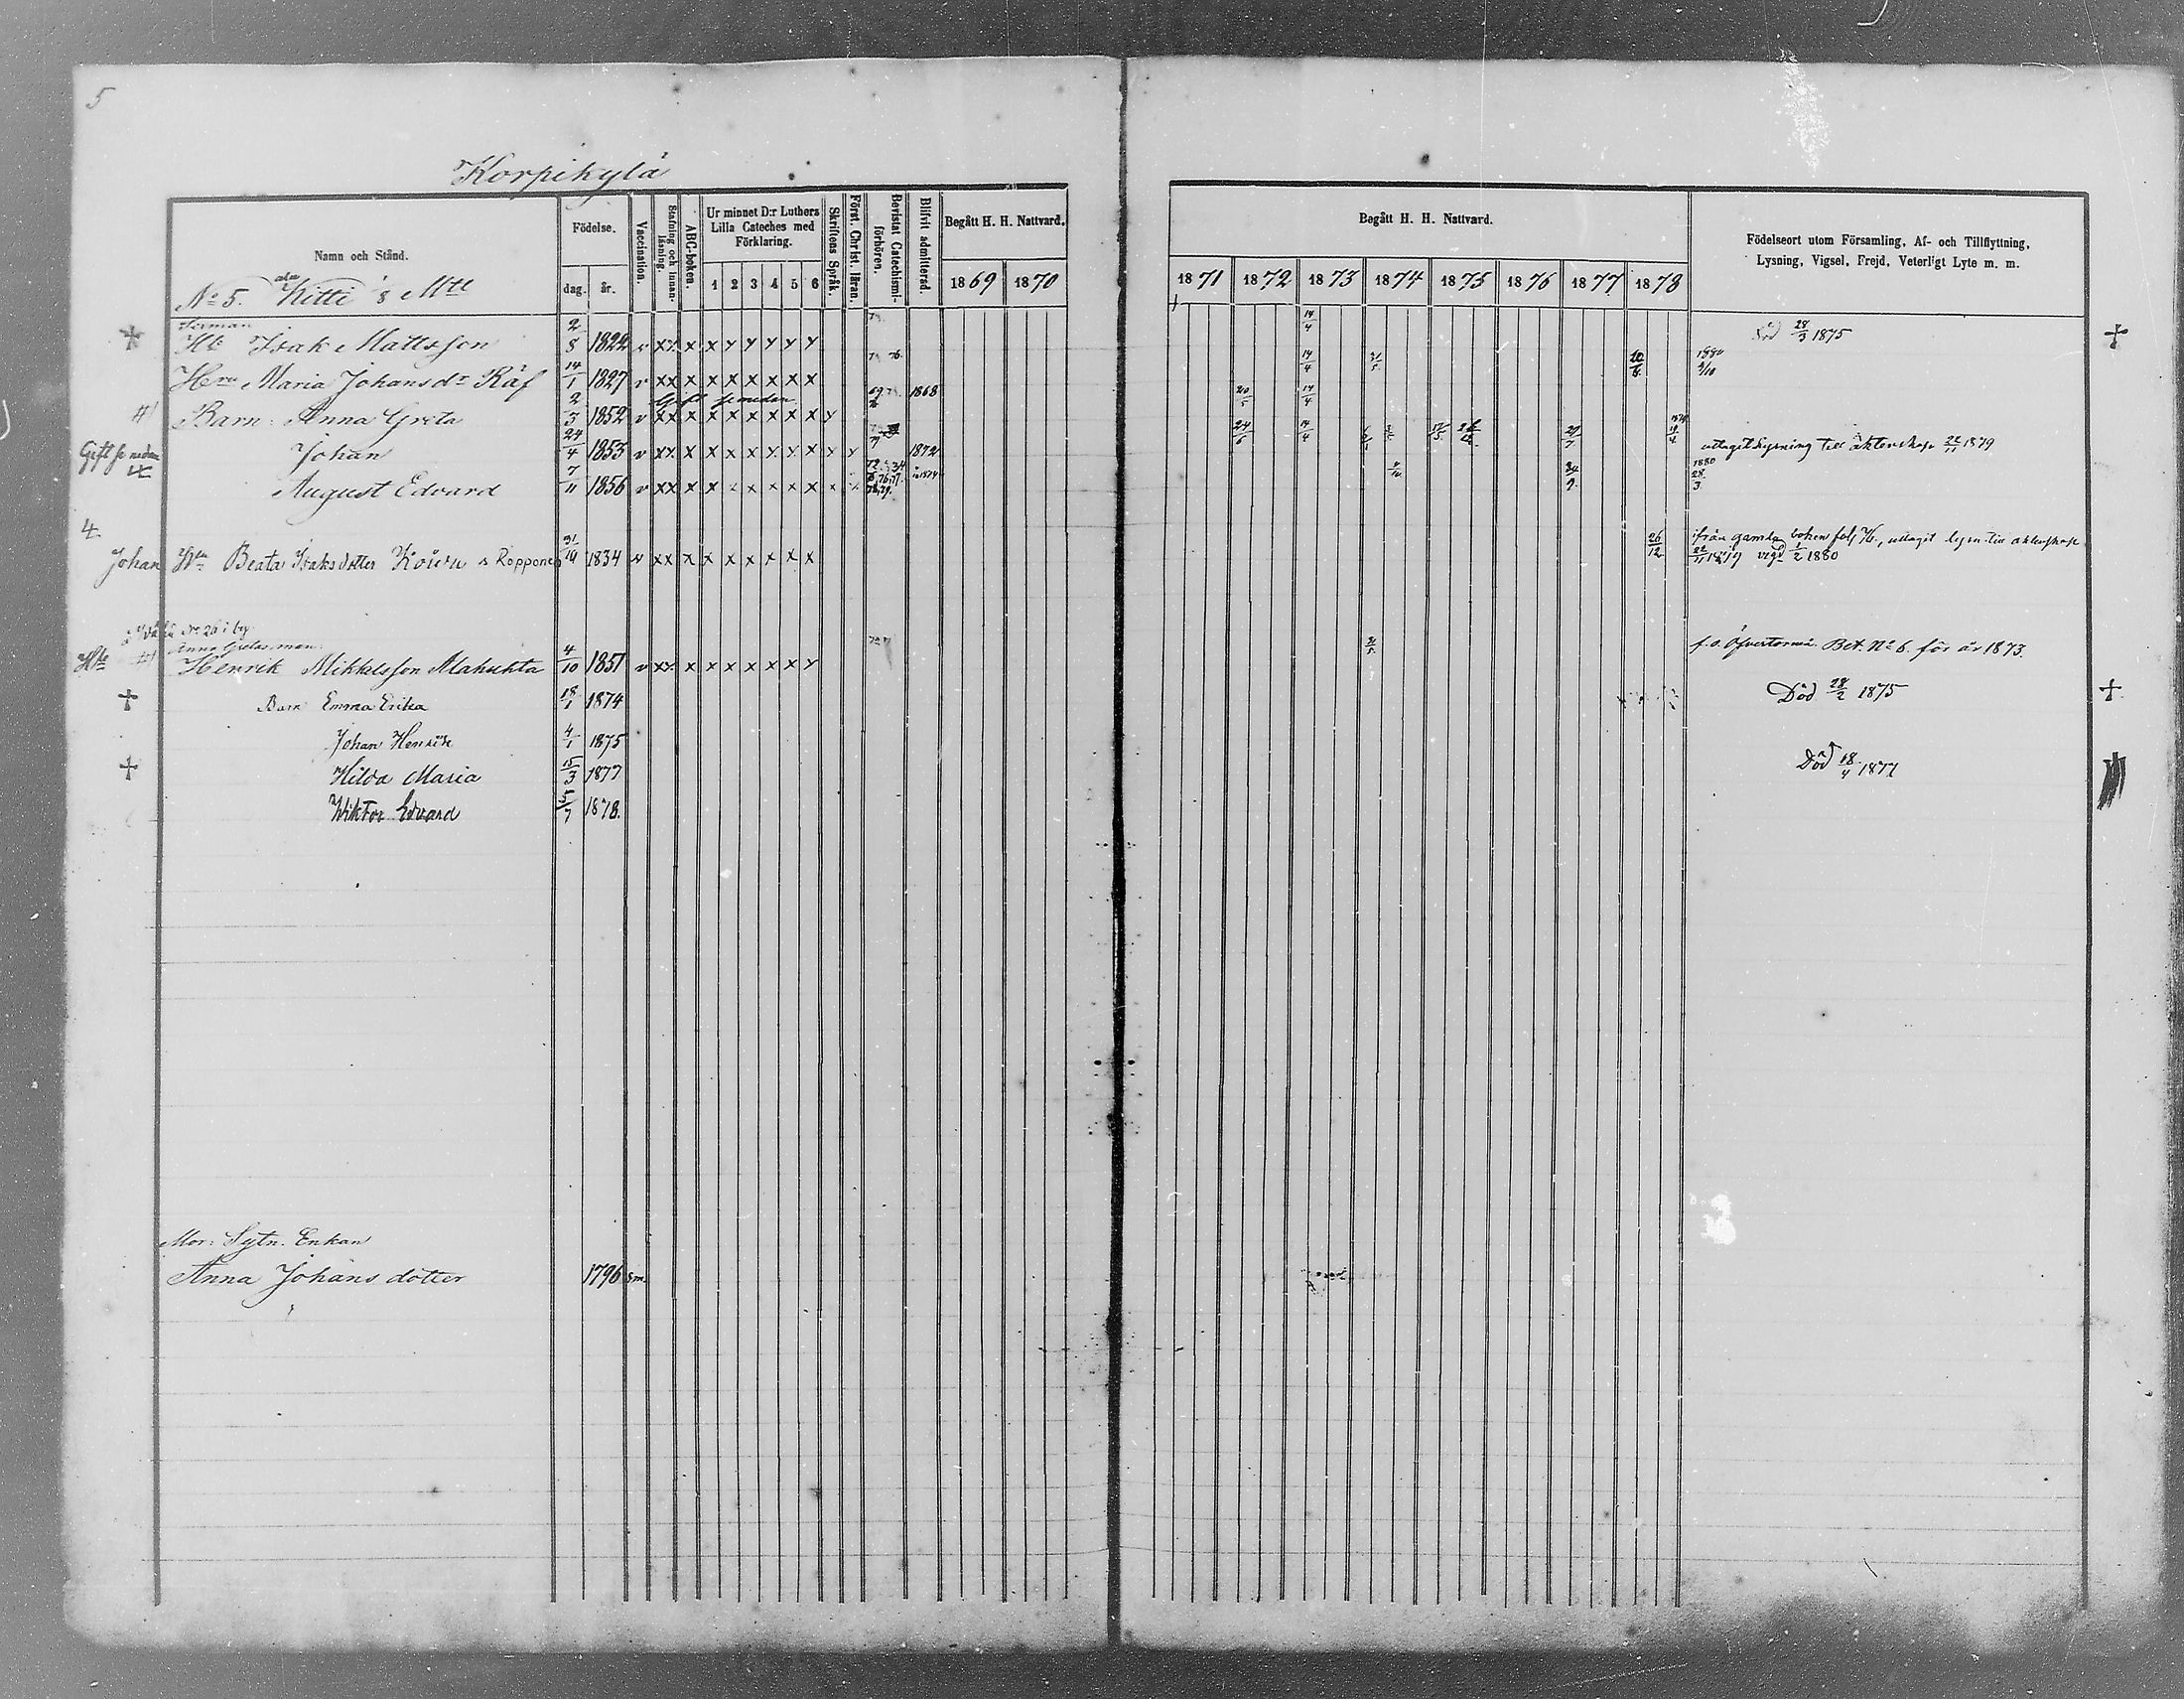 5
Korpikylä
Namn och Stånd.
Födelse.
dag. år.
Vaccination.
Stafning och innan-läsning.
ABC-boken.
Ur minnet D:r Luthers Lilla Cateches med Förklaring.
1 2 3 4 5 6
Skriftens Språk.
Först. Christ. läran.
Bevistat Catechismi-förhören.
Blifvit admitterad.
Begått H. H. Nattvard.
1869 1870
Begått H. H. Nattvard.
1871 1872 1873 1874 1875 1876 1877 1878
Födelseort utom Församling, Af- och Tillflyttning, Lysning, Vigsel, Frejd, Veterligt Lyte m. m.
No 5. ala Kitti
Hb Isak Mattsson 2/8 1822 v xx x x y y y y y 14/4 Död 28/3 1875
Hru Maria Johansdr Räf 14/1 1827 v xx x x x x x x x 14/4 1880
Gift se nedan
Barn: Anna Greta 2/3 1852 v xx x x x x x x x y 1868 20/5 14/4
Gift se nedan Johan 24/4 1853 v xx x x x x y y x y y 1872 24/6 14/4 uttagit lysning till äktenskap 22/11 1879
August Edvard 7/11 1856 v xx x x x x x x x 1880 28/3
4
Johan Hu Beata Isaksdotter 1834 v xx x x x x x x x 26/12 ifrån gamla boken uttagit lysn. till äktenskap
22/11 1879 vigd 1/2 1880
No 26 i by
Anna Gretas man
Henrik Mikkelsson Alakuhta 4/10 1851 v xx x x x x x x y f. i Öfvertorneå Bet. No 6. för år 1873.
Barn Emma Erika 18/1 1874 Död 28/2 1875
Johan Henrik 4/1 1875
Hilda Maria 15/3 1877 Död 18/4 1877
Wiktor Edvard 5/7 1878.
Mor: Sytn. Enkan
Anna Johans dotter 1796 sm.